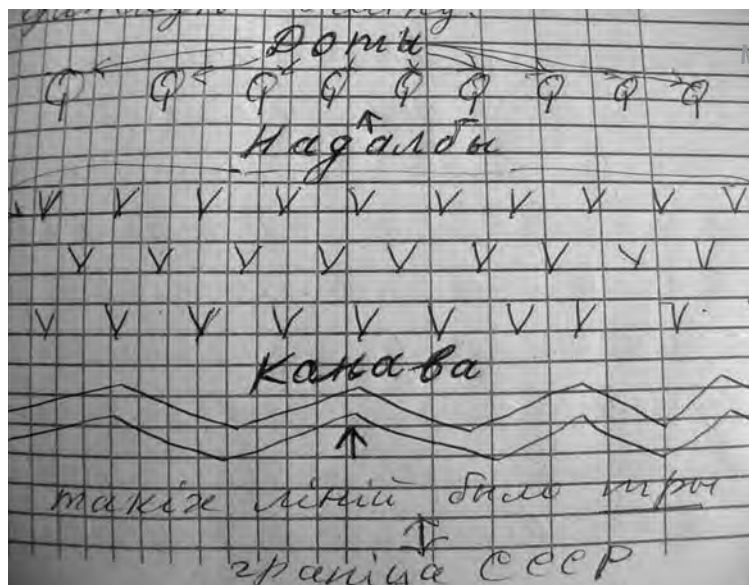 Доты
Надалбы
Канава
такіх ліній было тры
граніца СССР